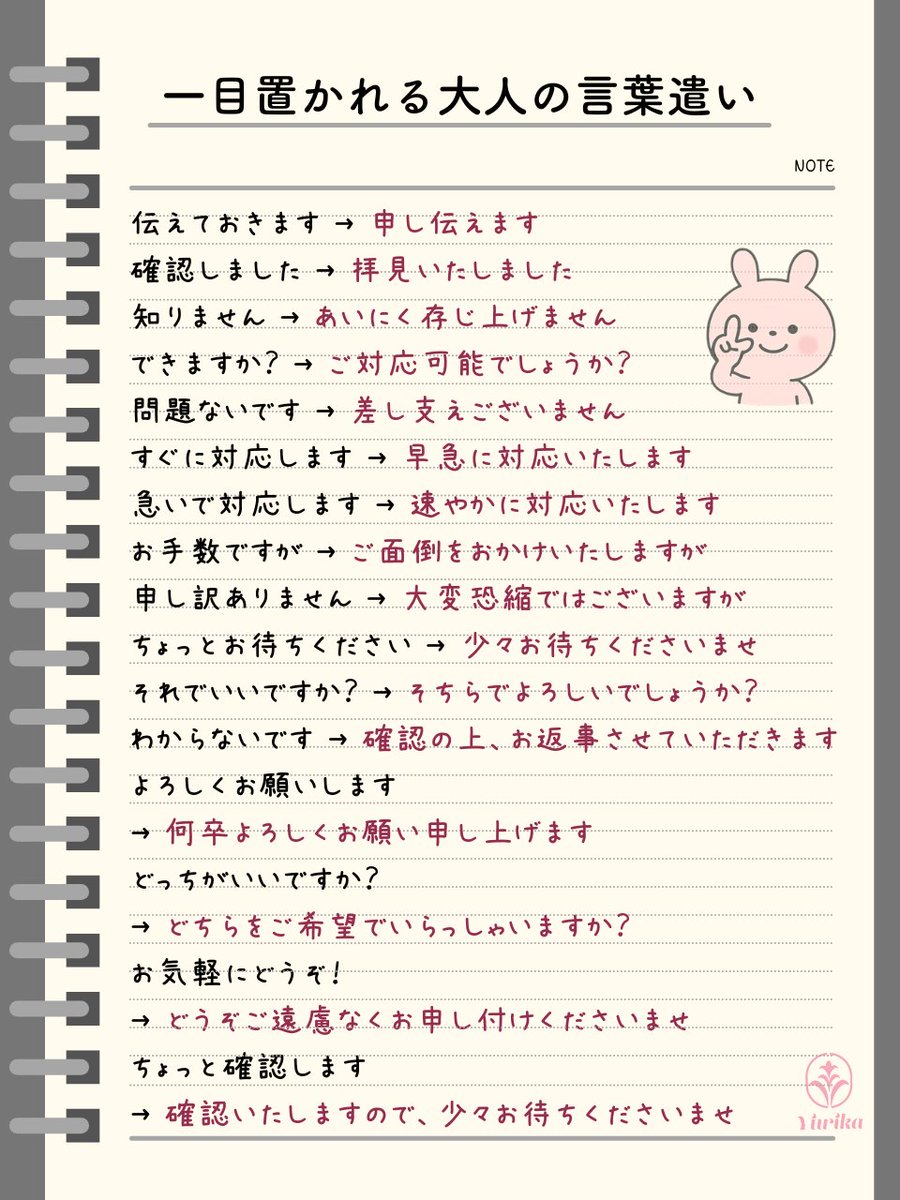 一目置かれる大人の言葉遣い
NOTE
伝えておきます → 申し伝えます
確認しました → 拝見いたしました
知りません → あいにく存じ上げません
できますか? → ご対応可能でしょうか?
問題ないです → 差し支えございません
すぐに対応します → 早急に対応いたします
急いで対応します → 速やかに対応いたします
お手数ですが → ご面倒をおかけいたしますが
申し訳ありません → 大変恐縮ではございますが
ちょっとお待ちください → 少々お待ちくださいませ
それでいいですか? → そちらでよろしいでしょうか?
わからないです → 確認の上、お返事させていただきます
よろしくお願いします
→ 何卒よろしくお願い申し上げます
どっちがいいですか?
→ どちらをご希望でいらっしゃいますか?
お気軽にどうぞ!
→ どうぞご遠慮なくお申し付けくださいませ
ちょっと確認します
→ 確認いたしますので、少々お待ちくださいませ